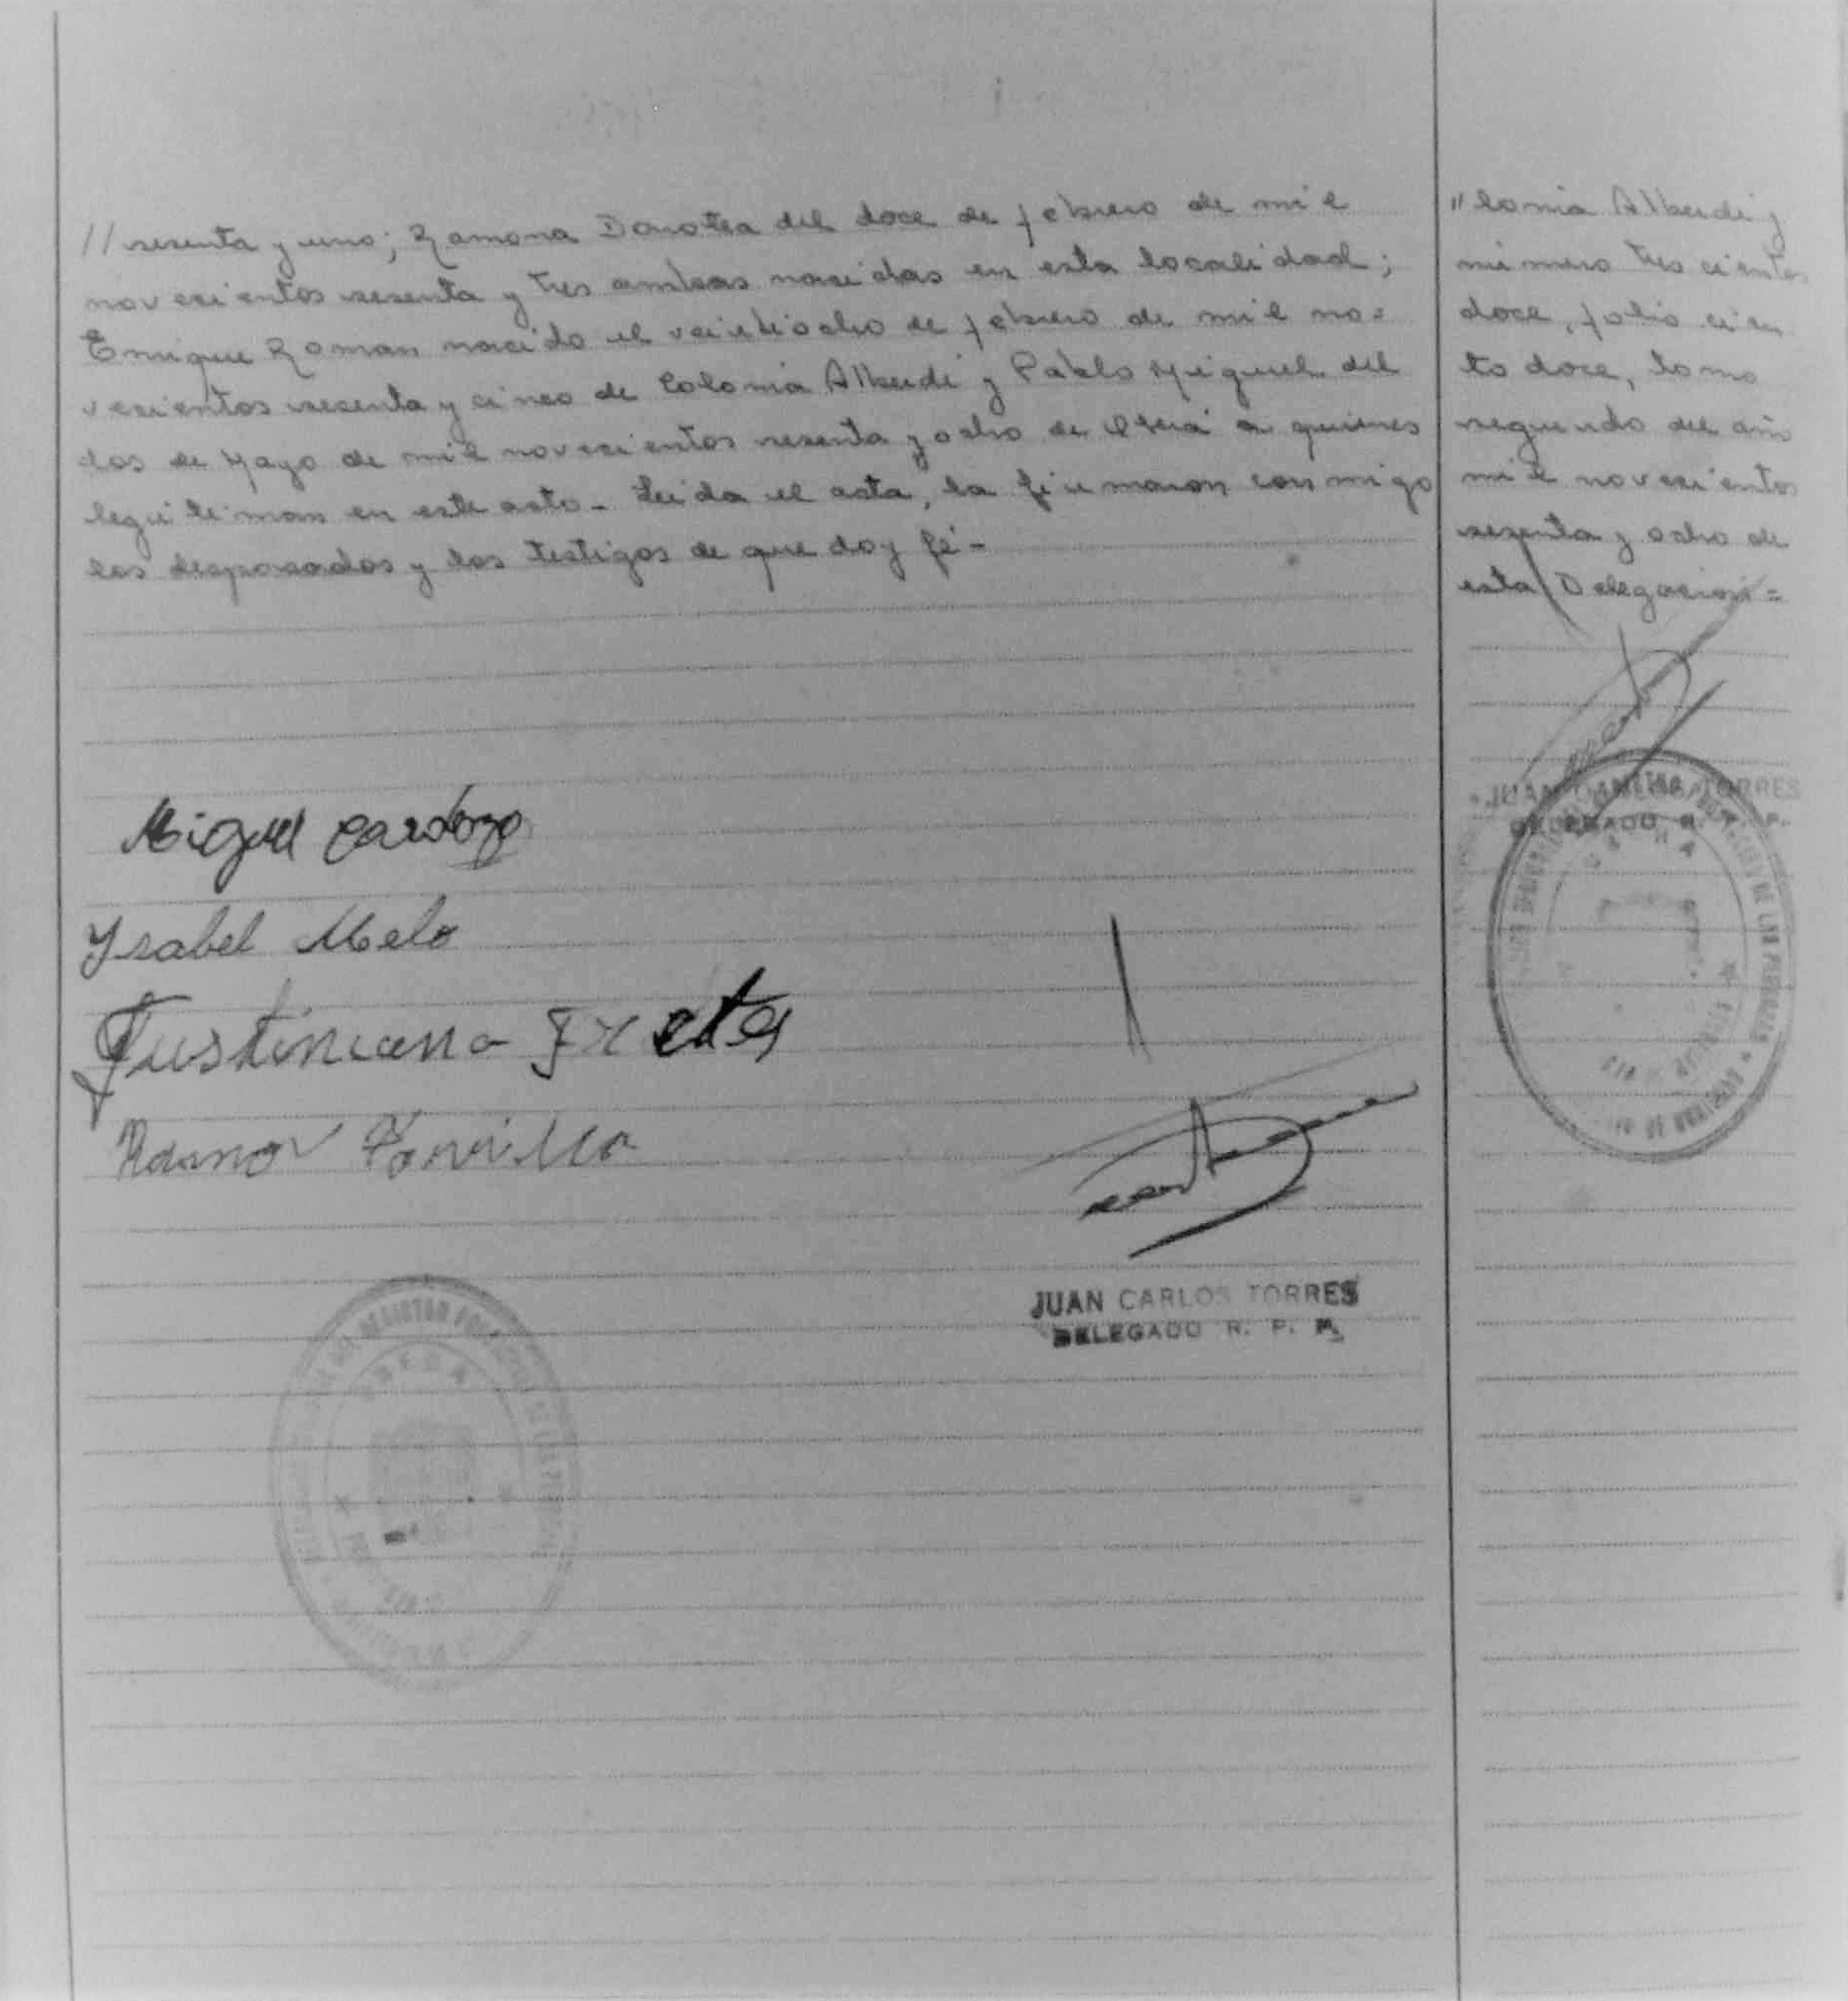 // sesenta y uno; Ramona Dorotea del doce de febrero de mil
novecientos sesenta y tres ambas nacidas en esta localidad;
Enrique Roman nacido el veintiocho de febrero de mil no=
vecientos sesenta y cinco de Colonia Alberdi y Pablo Miguel del
dos de Mayo de mil novecientos sesenta y ocho de Oberá a quienes
legitiman en este acto - Leida el acta, la firmaron conmigo
los desposados y los testigos de que doy fé -
Miguel Cardozo
Ysabel Melo
Justiniana
Ramon
JUAN CARLOS TORRES
DELEGADO R. P. P.
REGISTRO
// lonia Alberdi y
número trescientos
doce, folio cien
to doce, tomo
segundo del año
mil novecientos
sesenta y ocho de
esta Delegacion =
JUAN CARLOS TORRES
DELEGADO R. P. P.
DE LAS PERSONAS